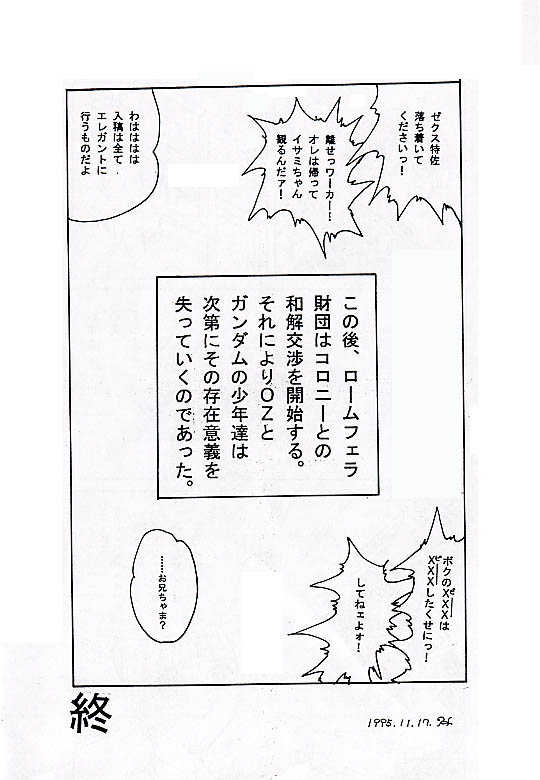 ゼクス特佐
落ち着いて
くださいっ！
離せっワーカー！
オレは帰って
イサミちゃん
観るんだァ！
わはははは
入稿は全て
エレガントに
行うものだよ
この後、ロームフェラ
財団はコロニーとの
和解交渉を開始する。
それによりＯＺと
ガンダムの少年達は
次第にその存在意義を
失っていくのであった。
ボクのXXXは
XXXしたくせにっ！
してねェよォ！
……お兄ちゃま？
終
1995.11.17.